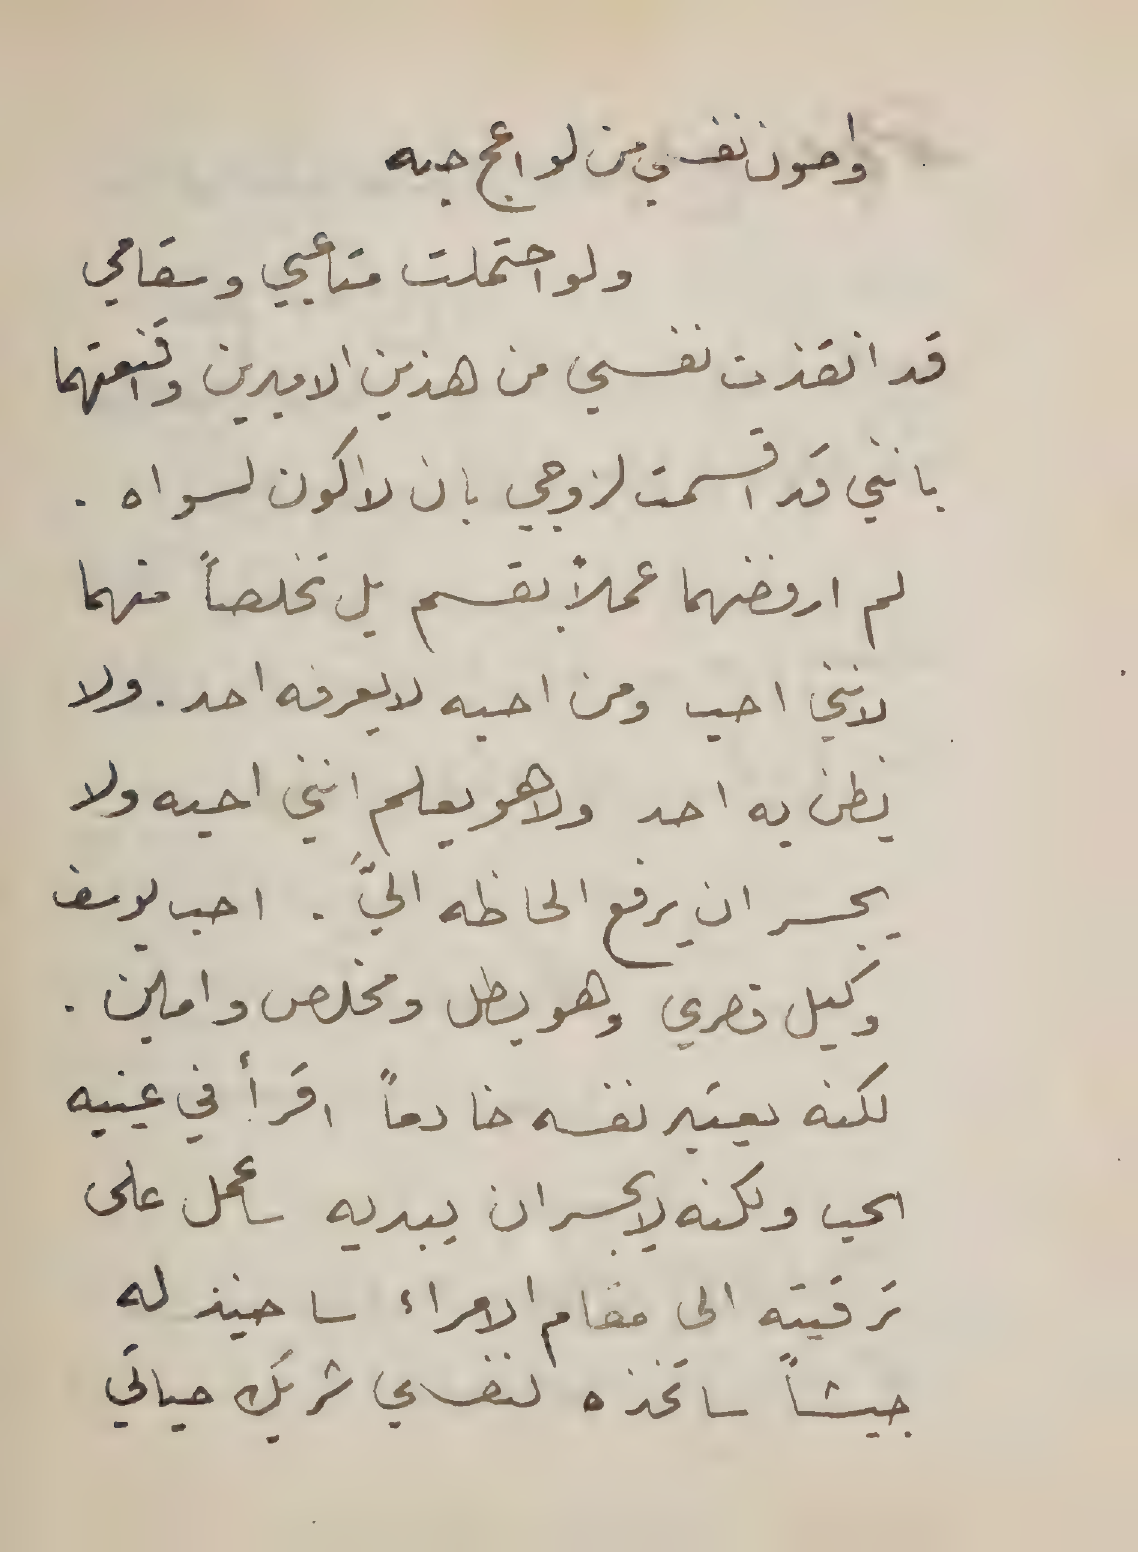 واصون نفسي من لواعج حبه
ولو احتملت متاعبي وسقامي
قد انقذت نفسي من هذين الاميرين واقنعتهما
بانني قد اقسمت لزوجي بان لا اكون لسواه .
لم ارفضهما عملاً بقسم بل تخلصاً منهما
لانني احب ومن احبه لا يعرفه احد . ولا
يظن به احد ولا هو يعلم انني احبه ولا
يجسر ان يرفع الحاظه اليَّ . احب يوسف
وكيل قصري وهو بطل ومخلص وامين .
لكنه يعتبر نفسه خادماً اقرأ في عينيه
الحب ولكنه لا يجسر ان يبديه ساعمل على
ترقيته الى مقام الامراء ساجند له
جيشاً ساتخذه لنفسي شريك حياتي